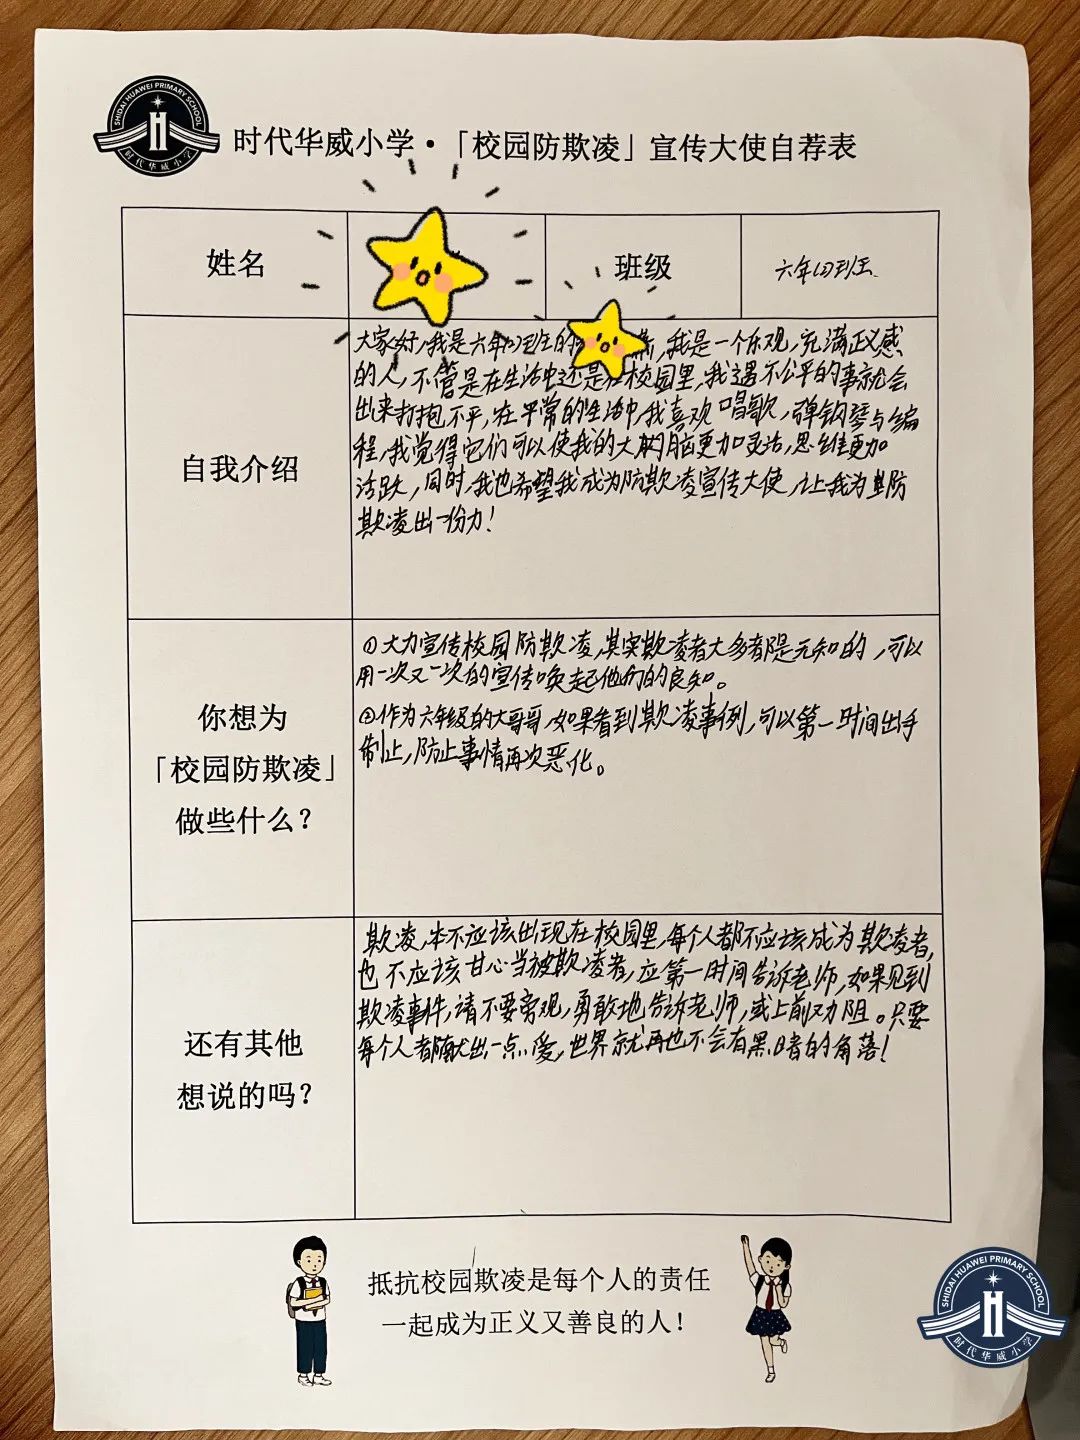 SHIDAI HUAWEI PRIMARY SCHOOL
时代华威小学
时代华威小学·「校园防欺凌」宣传大使自荐表
姓名
班级
六年
自我介绍
大家好,我是六年班的 我是一个乐观,充满正义感
的人,不管是在生活中还是在校园里,我遇不公平的事就会
出来打抱不平,在平常的生活中,我喜欢唱歌,弹钢琴与编
程,我觉得它们可以使我的大脑更加灵活,思维更加
活跃,同时,我也希望我成为防欺凌宣传大使,让我为防
欺凌出一份力!
你想为
「校园防欺凌」
做些什么?
①大力宣传校园防欺凌,其实欺凌者大多都是无知的,可以
用一次又一次的宣传唤起他们的良知。
②作为六年级的大哥哥,如果看到欺凌事例,可以第一时间出手
制止,防止事情再次恶化。
还有其他
想说的吗?
欺凌,本不应该出现在校园里,每个人都不应该成为欺凌者,
也不应该甘心当被欺凌者,应第一时间告诉老师,如果见到
欺凌事件,请不要旁观,勇敢地告诉老师,或上前劝阻。只要
每个人都献出一点爱,世界就再也不会有黑暗的角落!
抵抗校园欺凌是每个人的责任
一起成为正义又善良的人!
SHIDAI HUAWEI PRIMARY SCHOOL
时代华威小学